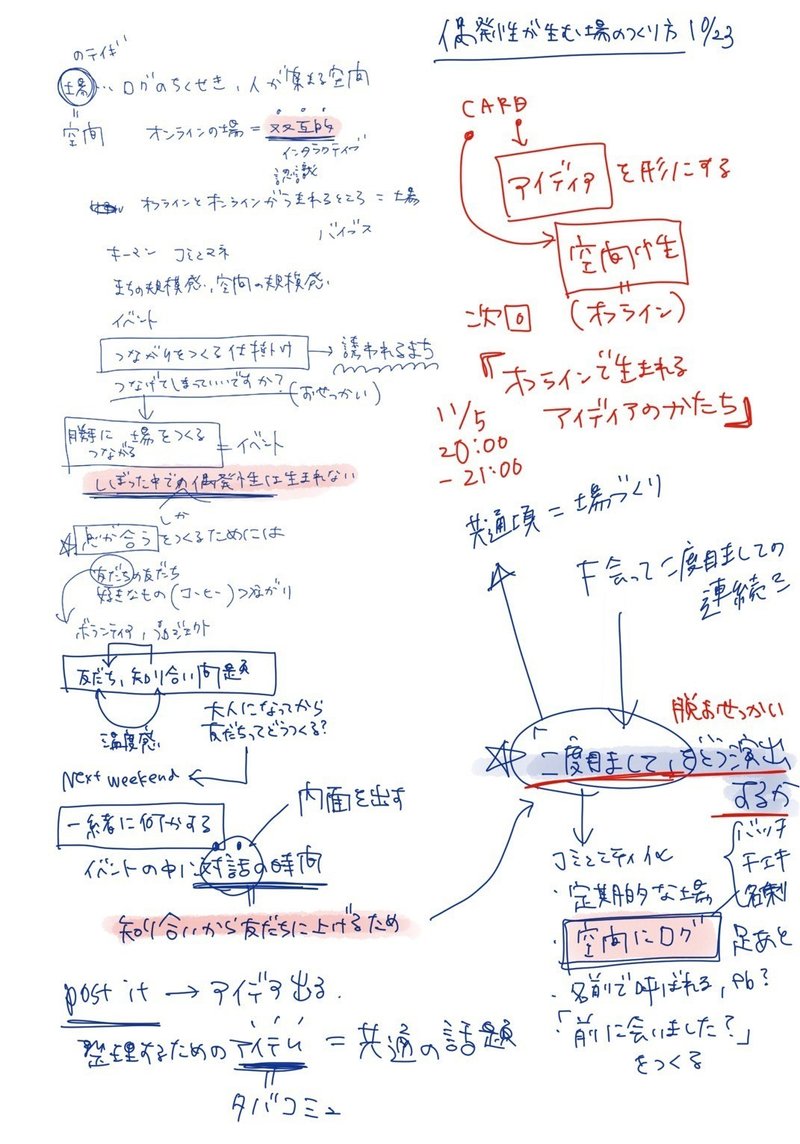 偶発性が生む場のつくり方 10/23
のテイギ
場…ログのちくせき、人が集まる空間
=
空間
オンラインの場=双互的
インタラクティブ
認識
オフラインとオンラインがうまれるところ=場
バイブス
キーマン コミュマネ
まちの規模感、空間の規模感
イベント
つながりをつくる仕掛け → 誘われるまち
つなげてしまっていいですか?(おせっかい)
勝手に場をつくる
つながる
=イベント
しぼった中での偶発性は生まれない
しか
☆息が合うをつくるためには
友だちの友だち
好きなもの(コーヒー)つながり
ボランティア, プロジェクト
友だち、知り合い問題
温度感
大人になってから
友だちってどうつくる?
Next weekend
一緒に何かする
内面を出す
イベントの中に対話の時間
=
知り合いから友だちに上げるため
post it → アイデア出る.
整理するためのアイテム = 共通の話題
=
タバコミュ
CARD
アイディアを形にする
空間内生
=
次回 (オンライン)
『オンラインで生まれる
アイディアのかたち』
11/5
20:00
- 21:00
共通項=場づくり
下会って二度目ましての
連続?
脱おせっかい
☆「二度目まして」をどう演出
するか
コミュニティ化
・定期的な場
・空間にログ
バッチ
チェキ
名刺
足あと
・名前で呼ばれる, pb?
・「前に会いました?」
をつくる